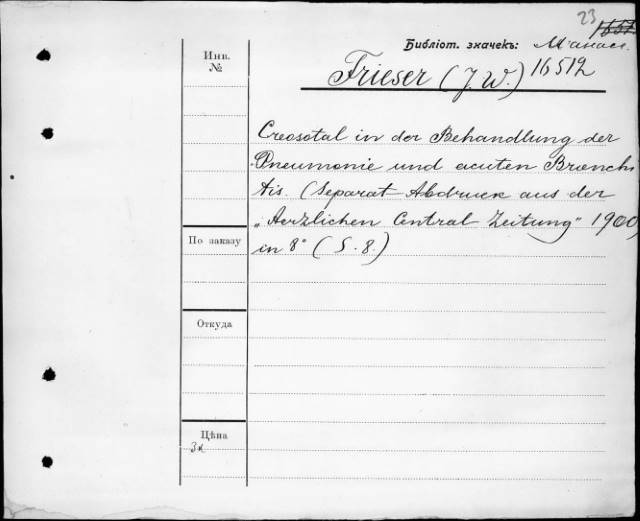 23
1657
Библіот. значекъ: Манас.
16512
Инв.
№
Frieser (J. W.)
Creosotal in der Behandlung der
Pneumonie und acuten Bronchi
tis. (Separat-Abdruck aus der
„Aerzlichen Central Zeitung" 1900)
in 8° (S. 8.)
По заказу
Откуда
Цѣна